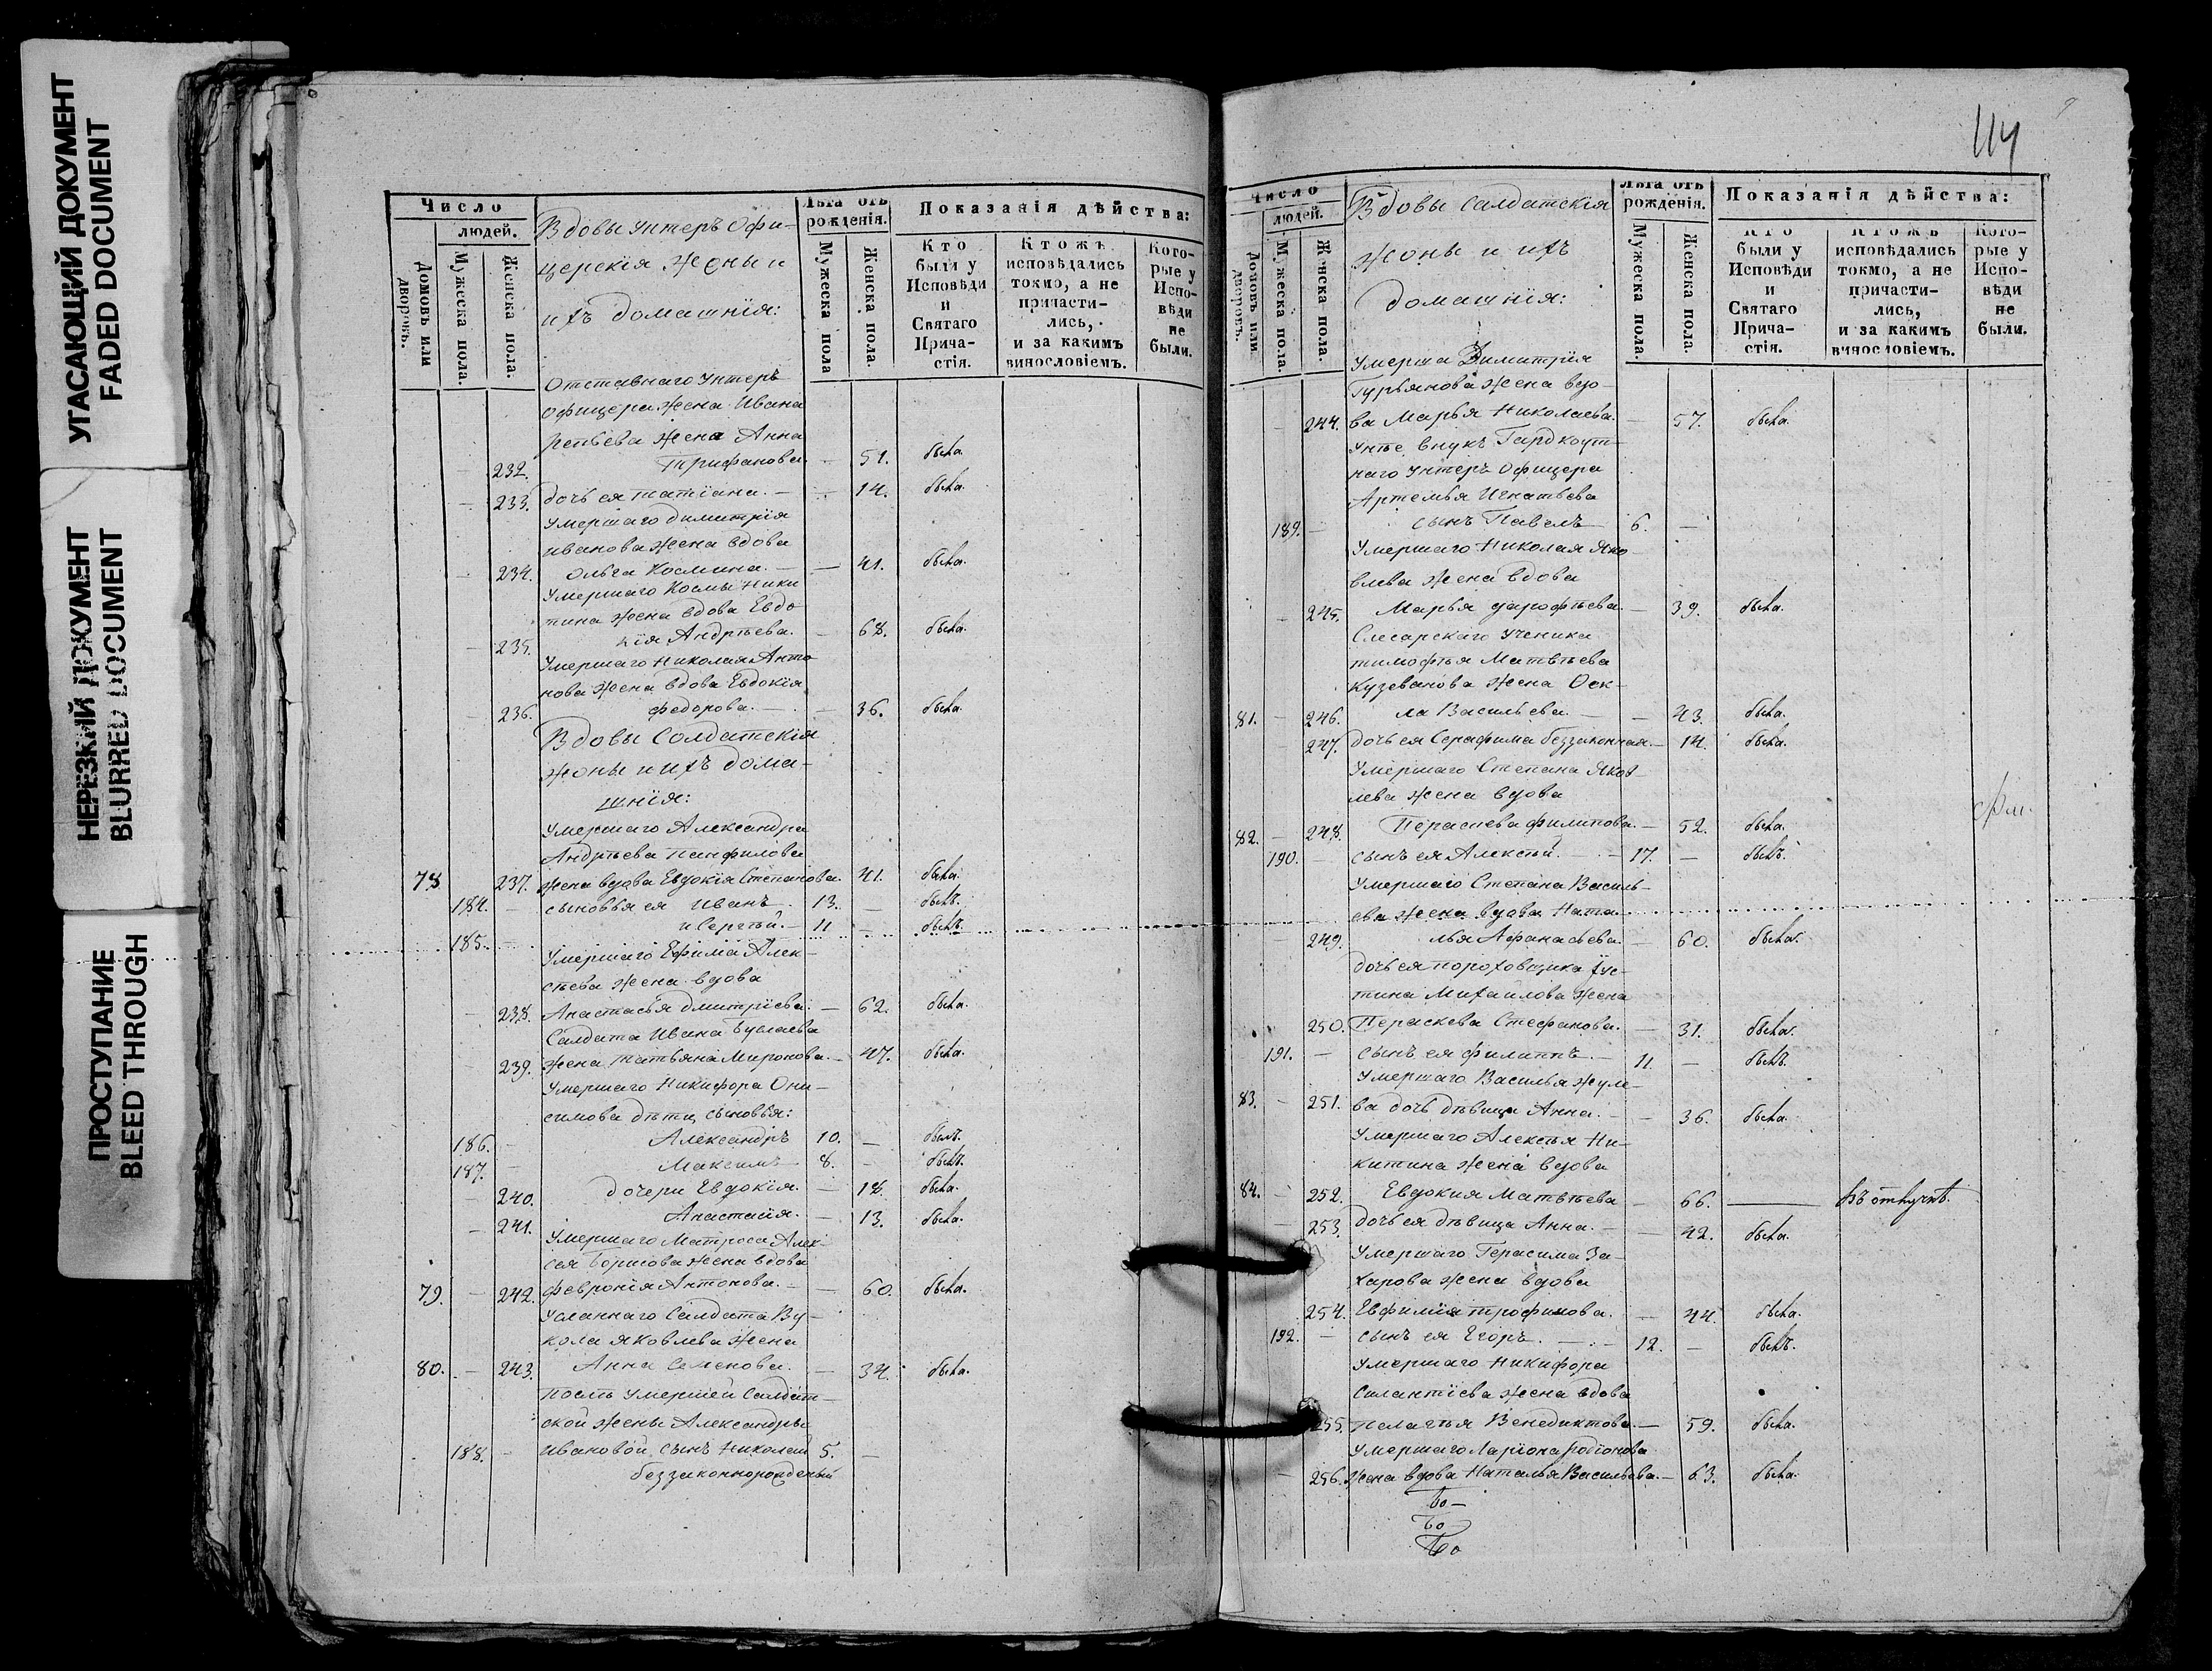 УГАСАЮЩИЙ ДОКУМЕНТ
FADED DOCUMENT
НЕРЕЗКИЙ ДОКУМЕНТ
BLURRED DOCUMENT
ПРОСТУПАНИЕ
BLEED THROUGH
Число
людей.
Домовъ или дворовъ.
Мужеска пола.
Женска пола.
Вдовы Унтеръ Офи-
церскія жены и
ихъ домашнія:
Лѣта отъ рожденія.
Мужеска пола
Женска пола.
Показанія дѣйства:
Кто были у Исповѣди и Святаго Причастія.
Ктожъ исповѣдались токмо, а не причасти-лись, и за какимъ винословіемъ.
Кото-рые у Испо-вѣди не были.
Отставнаго Унтеръ
офицера жена Ивана
жена Анна
232. Трифанова. — 51. была.
233. дочь ея татіана. — 14. была.
Умершаго димитрія
иванова жена вдова
234. Ольга Космина. — 41. была.
Умершаго Космы Ники
тина жена вдова Евдо
235. кія Андрѣева. — 68. была.
Умершаго Николая Анто
нова жена вдова Евдокія
236. федорова. — 36. была.
Вдовы Солдатскія
жоны и ихъ дома-
шнія:
Умершаго Александра
Андрѣева Панфилова
78. 237. жена вдова Евдокія Степанова. 41. была.
184. — сыновья ея Иванъ. 13. — былъ.
185. — и Сергѣй. — 11 — былъ.
Умершаго Ефима Алек-
сѣева жена вдова
— 238. Анастасья дмитріева. — 62. была.
Салдата Ивана
— 239. жена татьяна Миронова. — 47. была.
Умершаго Никифора Они-
симова дѣти, сыновья:
186. — Александръ 10. — былъ.
187. — Максимъ 8. — былъ.
— 240. дочери Евдокія. — 18. была.
— 241. Анастасія. — 13. была.
Умершаго Матроса Алек-
сея Борисова жена вдова
79. — 242. февронія Антонова. — 60. была.
Усланнаго Салдата Ву-
кола Яковлева жена
80. — 243. Анна Семенова. — 34. была.
послѣ умершей Салдат-
ской жены Александры
188. — Ивановой, сынъ Николай 5. —
беззаконнорожденый
114
Число
людей.
Домовъ или дворовъ.
Мужеска пола.
Женска пола.
Вдовы Салдатскія
жоны и ихъ
домашнія:
Лѣта отъ рожденія.
Мужеска пола.
Женска пола.
Показанія дѣйства:
Кто были у Исповѣди и Святаго Прича-стія.
Ктожъ исповѣдались токмо, а не причасти-лись, и за какимъ винословіемъ.
Кото-рые у Испо-вѣди не были.
Умерша Димитрія
Гурьянова жена вдо-
— 244. ва Марья Николаева. — 57. была.
внукъ
наго Унтеръ Офицера
Артемья Игнатьева
189. — сынъ Павелъ 6. —
Умершаго Николая Яко
влева жена вдова
— 245. Марья — 39. была.
Слесарскаго Ученика
тимофѣя Матвѣева
жена Оек-
81. — 246. ла Васильева. — 43. была.
247. дочь ея Серафима беззаконная. — 14. была.
Умершаго Степана Яков-
лева жена вдова
82. — 248. филипова. — 52. была.
190. — сынъ ея Алексѣй. — 17. — былъ.
Умершаго Степана Василь-
ева жена вдова Ната-
— 249. лья Афанасьева. — 60. была.
дочь ея пороховщика
тина Михаилова жена
250. Параскева Стефанова. — 31. была.
191. — сынъ ея филиппъ. — 11. — былъ.
Умершаго Василья Жуле-
83. — 251. ва дочь дѣвица Анна. — 36. была.
Умершаго Алексѣя Ни-
китина жена вдова
84. — 252. Евдокия Матвѣева — 66. — въ отлучкѣ.
— 253. дочь ея дѣвица Анна. — 42. была.
Умершаго Герасима За-
харова жена вдова
254. Евфимія трофимова. — 44. была.
192. — сынъ ея Егоръ. — 12. — былъ.
Умершаго Никифора
Силантіева жена вдова
255. пелагѣя Венедиктова. — 59. была.
Умершаго Ларіона Родіонова
— 256. жена вдова Наталья Васильева. — 63. была.